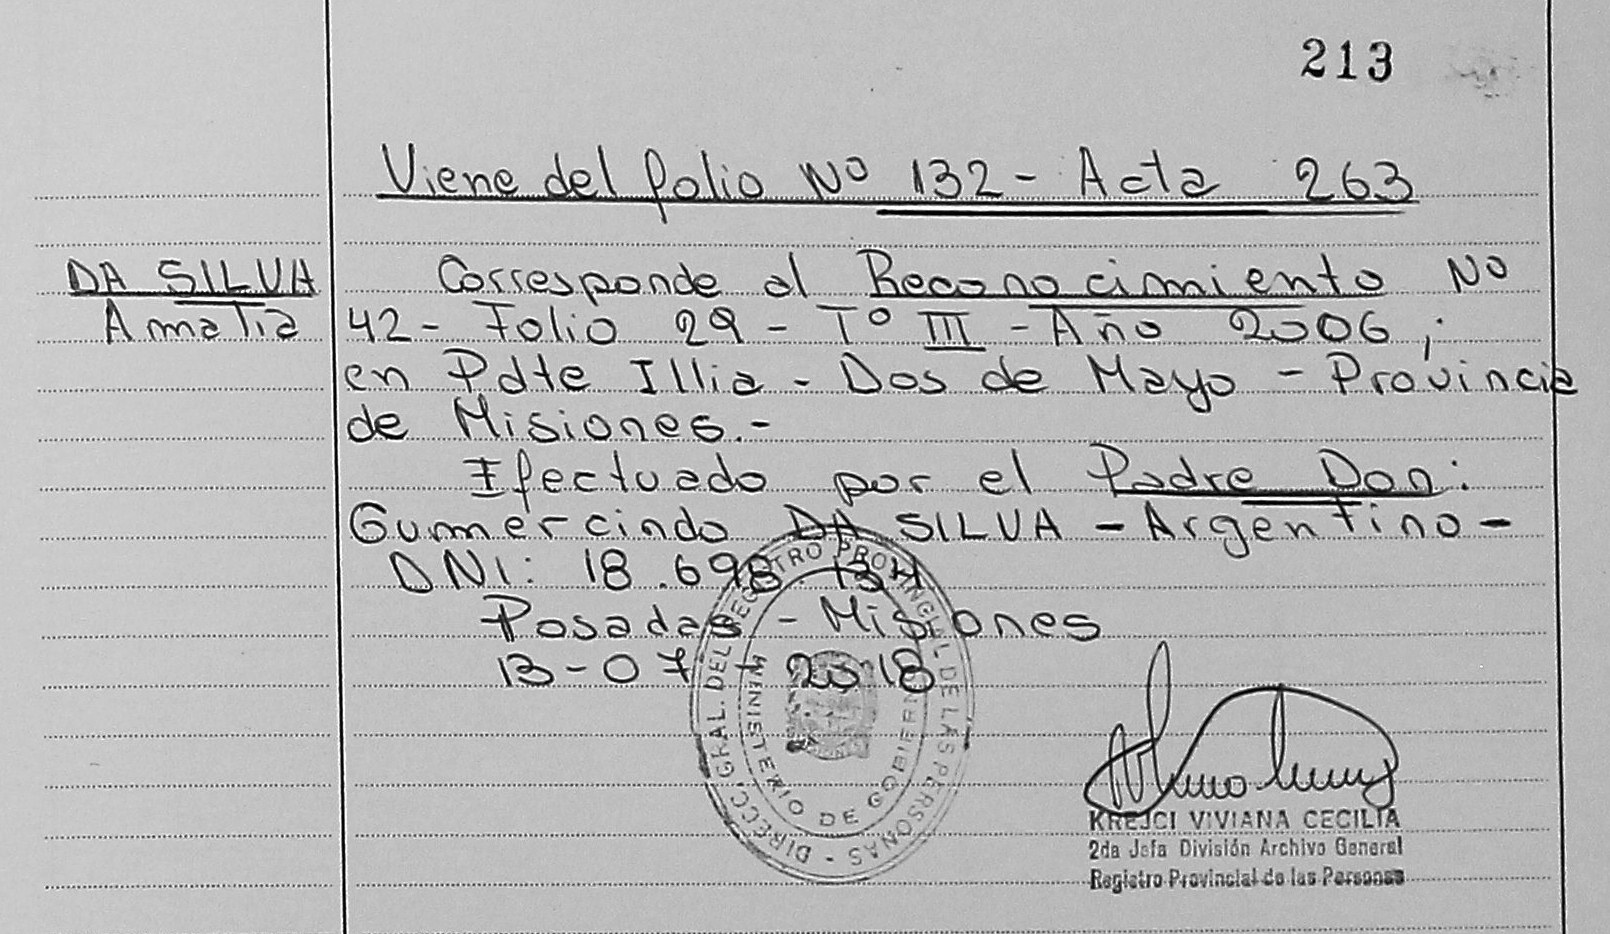 213
Viene del folio Nº 132 - Acta 263
DA SILVA
Amalia
Corresponde al Reconocimiento Nº
42 - Folio 29 - Tº III - Año 2006;
en Pdte Illia - Dos de Mayo - Provincia
de Misiones.-
Efectuado por el Padre Don:
Gumercindo DA SILVA - Argentino -
DNI: 18.698.134
Posadas - Misiones
13-07-2018
DIRECC. GRAL. DEL REGISTRO PROVINCIAL DE LAS PERSONAS -
MINISTERIO DE GOBIERNO
KREJCI VIVIANA CECILIA
2da Jefa División Archivo General
Registro Provincial de las Personas